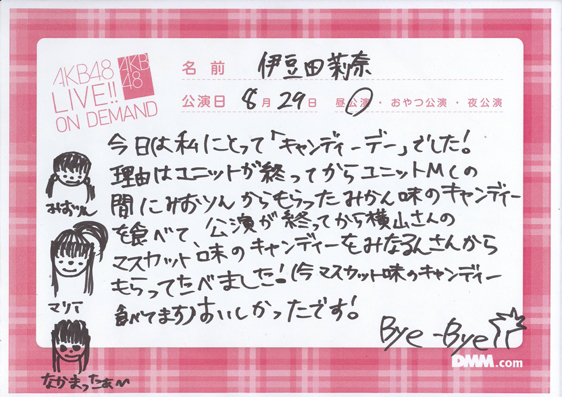 AKB48
LIVE!!
ON DEMAND
AKB
48
名前 伊豆田莉奈
公演日 8月29日 昼公演・おやつ公演・夜公演
今日は私にとって「キャンディーデー」でした!
理由はユニットが終ってからユニットMCの
間にみおりんからもらったみかん味のキャンディー
を食べて、公演が終ってから横山さんの
マスカット味のキャンディーをみなるんさんから
もらってたべました!(今マスカット味のキャンディー
食べてます)おいしかったです!
みおりん
マリア
なかまったぁ~
Bye-Bye
DMM.com